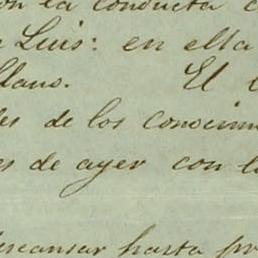 on la conducta c
Luis: en ella
llano. El
es de los conocim
es de ayer con l
escansar hasta pr